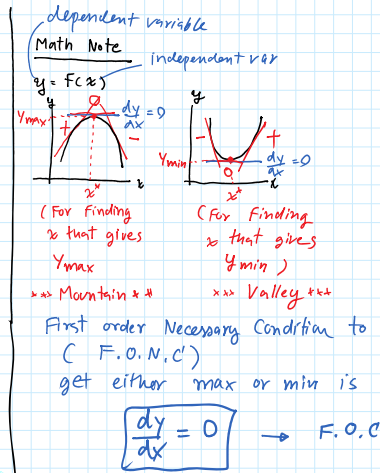 dependent variable
Math Note
independent var
y = F(x)
y
Ymax
0
dy/dx = 0
+
-
x*
x
y
Ymin
-
+
dy/dx = 0
0
x*
x
(For finding
x that gives
Ymax
*** Mountain ***
(For finding
x that gives
Ymin)
*** Valley ***
First order Necessary Condition to
( F.O.N.C )
get either max or min is
dy/dx = 0 → F.O.C